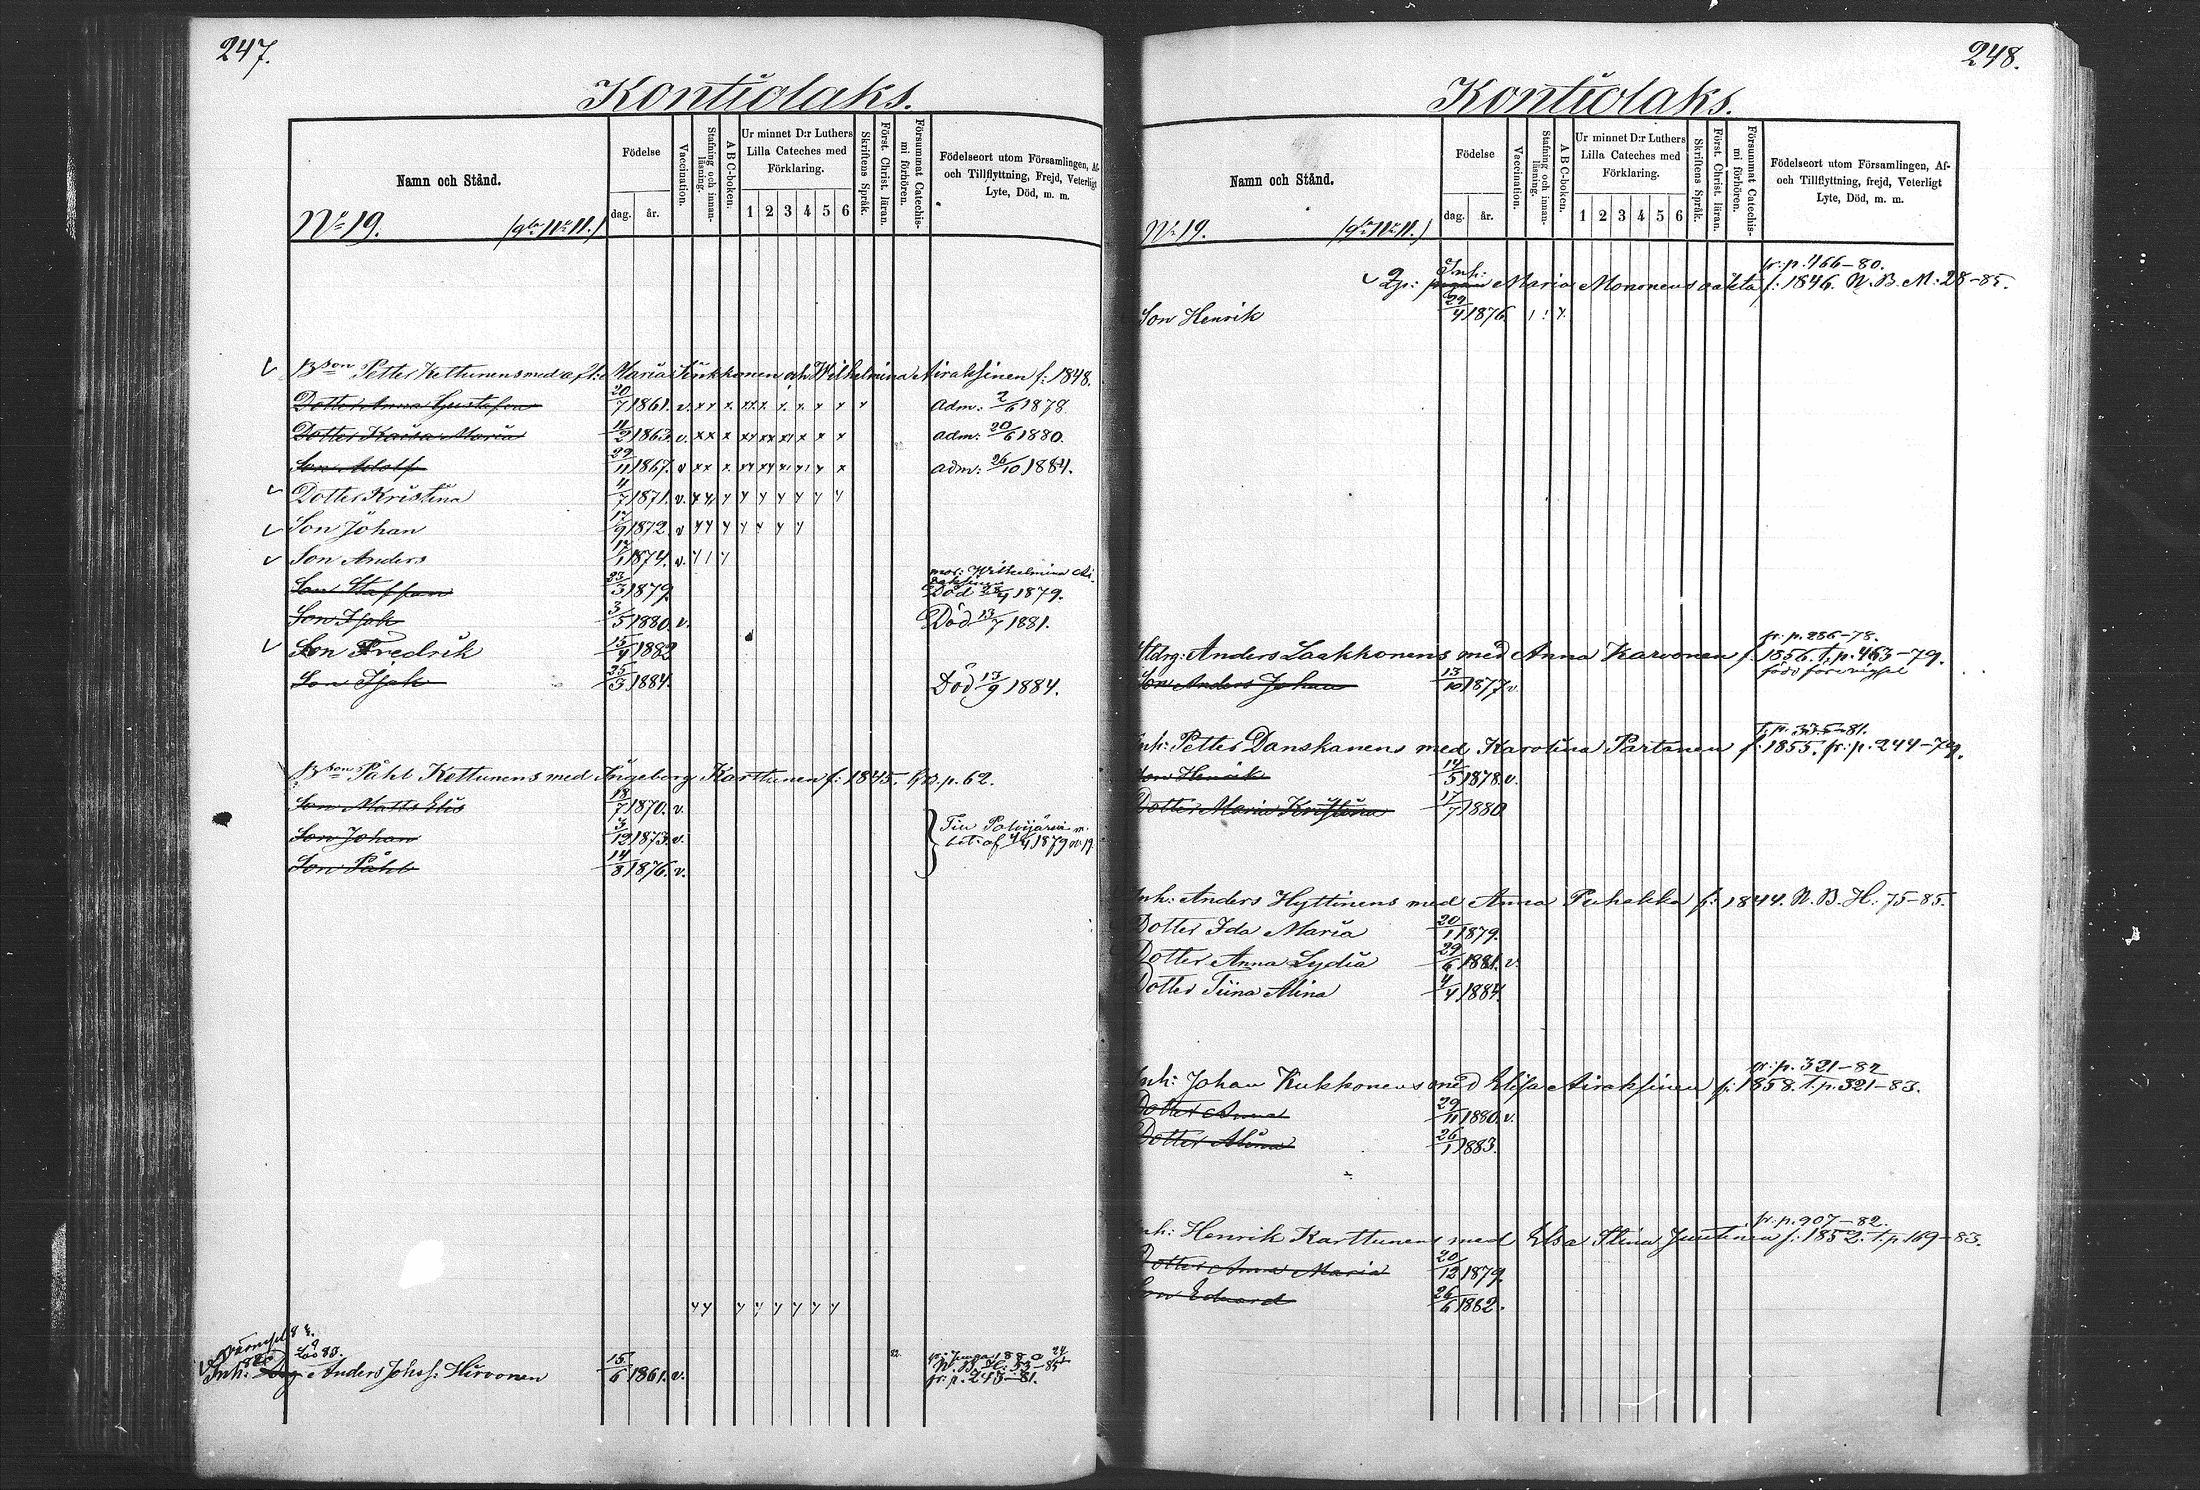 247.
Kontiolaks.
Namn och Stånd.
Födelse
dag.
år.
Vaccination.
Stafning och innan-läsning.
A B C-boken.
Ur minnet D:r Luthers
Lilla Cateches med
Förklaring.
1 2 3 4 5 6
Skriftens Språk.
Först. Christ. läran.
Försummat Catechis-mi förhören.
Födelseort utom Församlingen, Af-
och Tillflyttning, Frejd, Veterligt
Lyte, Död, m. m.
No 19. (gla No 11.)
Bson Petter Kettunens med afl: Maria Sinkkonen och Wilhelmina Airaksinen f: 1848.
Dotter Anna Gustafva 20/7 1861. v. adm: 2/6 1878.
Dotter Kaisa Maria 11/2 1863. v. adm: 20/6 1880.
Son Adolf 29/11 1867. v adm: 26/10 1884.
Dotter Kristina 4/7 1871. v.
Son Johan 17/9 1872. v
Son Anders 17/1 1874. v.
mor: Wilhelmina Ai-
raksinen
Son Staffan 23/3 1879. Död 1879.
Son Isak 3/5 1880. v. Död 13/7 1881.
Son Fredrik 15/4 1882
Son Isak 25/3 1884. Död 13/9 1884.
Bson Påhl Kettunens med Ingeborg Karttunen f: 1845. p. 62.
Son Matts Elis 18/7 1870. v.
Son Johan 3/12 1873. v. Till Polvijärvi m.
bet. af 4/4 1879 n: 19
Son Påhl 14/8 1876. v.
Inh: Anders Johs: Hirvonen 15/6 1861. v.
N. B. H: 53-85
fr: p. 245-81.
248.
Kontiolaks.
Namn och Stånd.
Födelse
dag.
år.
Vaccination.
Stafning och innan-läsning.
A B C-boken.
Ur minnet D:r Luthers
Lilla Cateches med
Förklaring.
1 2 3 4 5 6
Skriftens Språk.
Först. Christ. läran.
Försummat Catechis-mi förhören.
Födelseort utom Församlingen, Af-
och Tillflyttning, frejd, Veterligt
Lyte, Död, m. m.
No 19. (gla No 11.)
fr: p. 466-80.
Inh:
Qp: Maria Mononens oäkta f: 1846. N. B. M: 28-85.
Son Henrik 29/4 1876.
fr. p. 286-78.
Anders Laakkonens med Anna Karvonen f: 1856. t. p. 463-79.
Son Anders Johan 13/10 1877 v.
t. p. 335-81.
Inh: Petter Danskanens med Karolina Partanen f: 1855. fr: p. 244-79.
Son Henrik 14/5 1878. v.
Dotter Maria Kristina 17/7 1880
Inh: Anders Hyttinens med Anna Puhakka f: 1844. N. B. H. 75-85.
Dotter Ida Maria 20/1 1879.
Dotter Anna Lydia 29/6 1881. v.
Dotter Tiina Alina 4/4 1884.
fr: p. 321-82
Inh: Johan Kukkonens med Elisa Airaksinen f: 1858. t. p. 321-83.
Dotter Anna 29/11 1880. v.
Dotter Alina 26/1 1883.
fr: p. 907-82.
Inh: Henrik Karttunens med Elsa Stina Juutinen f: 1852. t. p. 169-83.
Dotter Anna Maria 20/12 1879.
Son Edvard 26/6 1882.